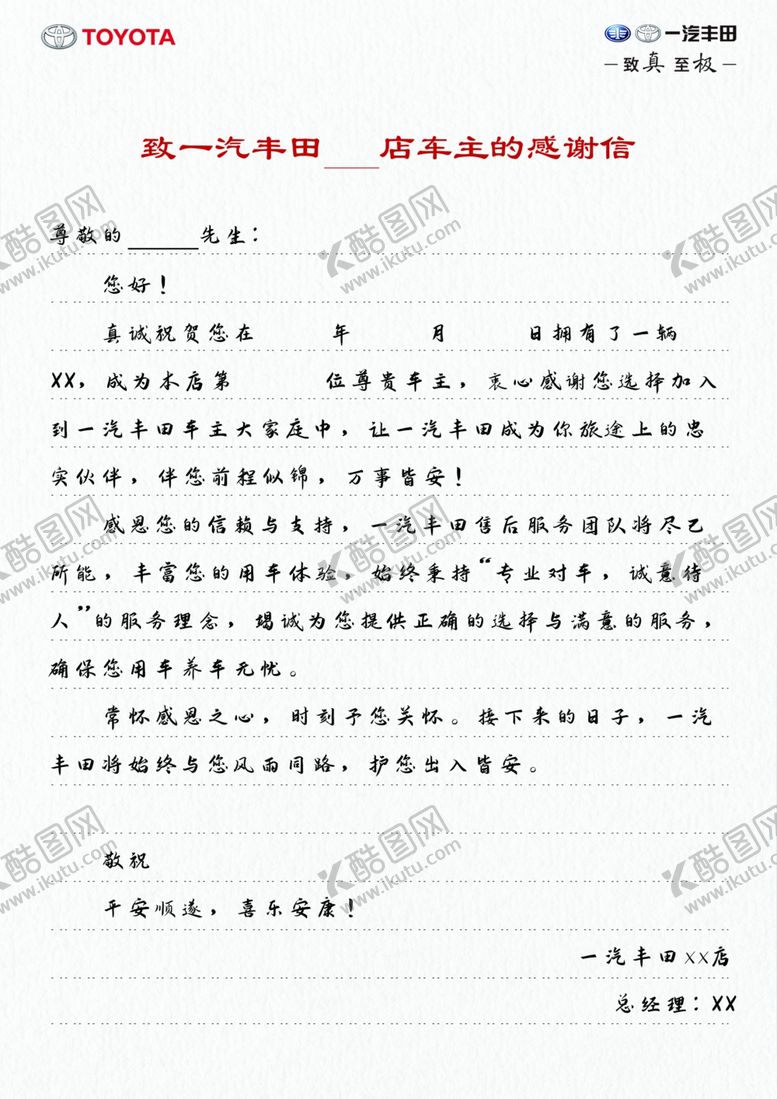 TOYOTA
一汽丰田
—致真 至极—
致一汽丰田____店车主的感谢信
尊敬的______先生：
您好！
真诚祝贺您在 年 月 日拥有了一辆
XX，成为本店第 位尊贵车主，衷心感谢您选择加入
到一汽丰田车主大家庭中，让一汽丰田成为你旅途上的忠
实伙伴，伴您前程似锦，万事皆安！
感恩您的信赖与支持，一汽丰田售后服务团队将尽己
所能，丰富您的用车体验，始终秉持“专业对车，诚意待
人”的服务理念，竭诚为您提供正确的选择与满意的服务，
确保您用车养车无忧。
常怀感恩之心，时刻予您关怀。接下来的日子，一汽
丰田将始终与您风雨同路，护您出入皆安。
敬祝
平安顺遂，喜乐安康！
一汽丰田xx店
总经理：XX
酷图网
www.ikutu.com